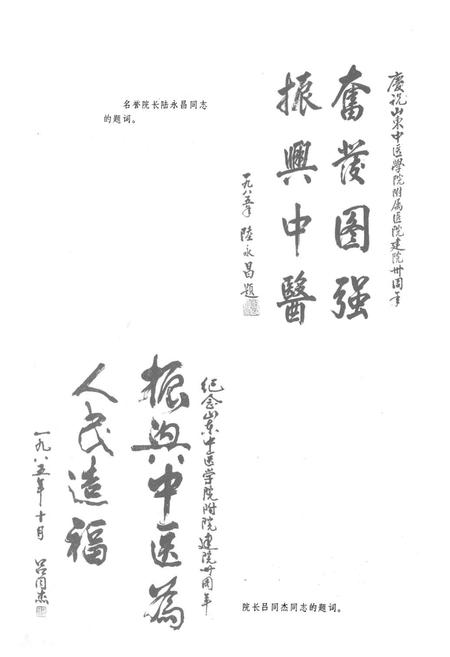 慶祝山東中医學院附属医院建院卅周年
奮发图强
振興中醫
一九八五年 陸永昌題
名誉院长陆永昌同志
的题词。
纪念山东中医学院附院建院卅周年
振興中医為
人民造福
一九八五年十月 吕同杰
院长吕同杰同志的题词。